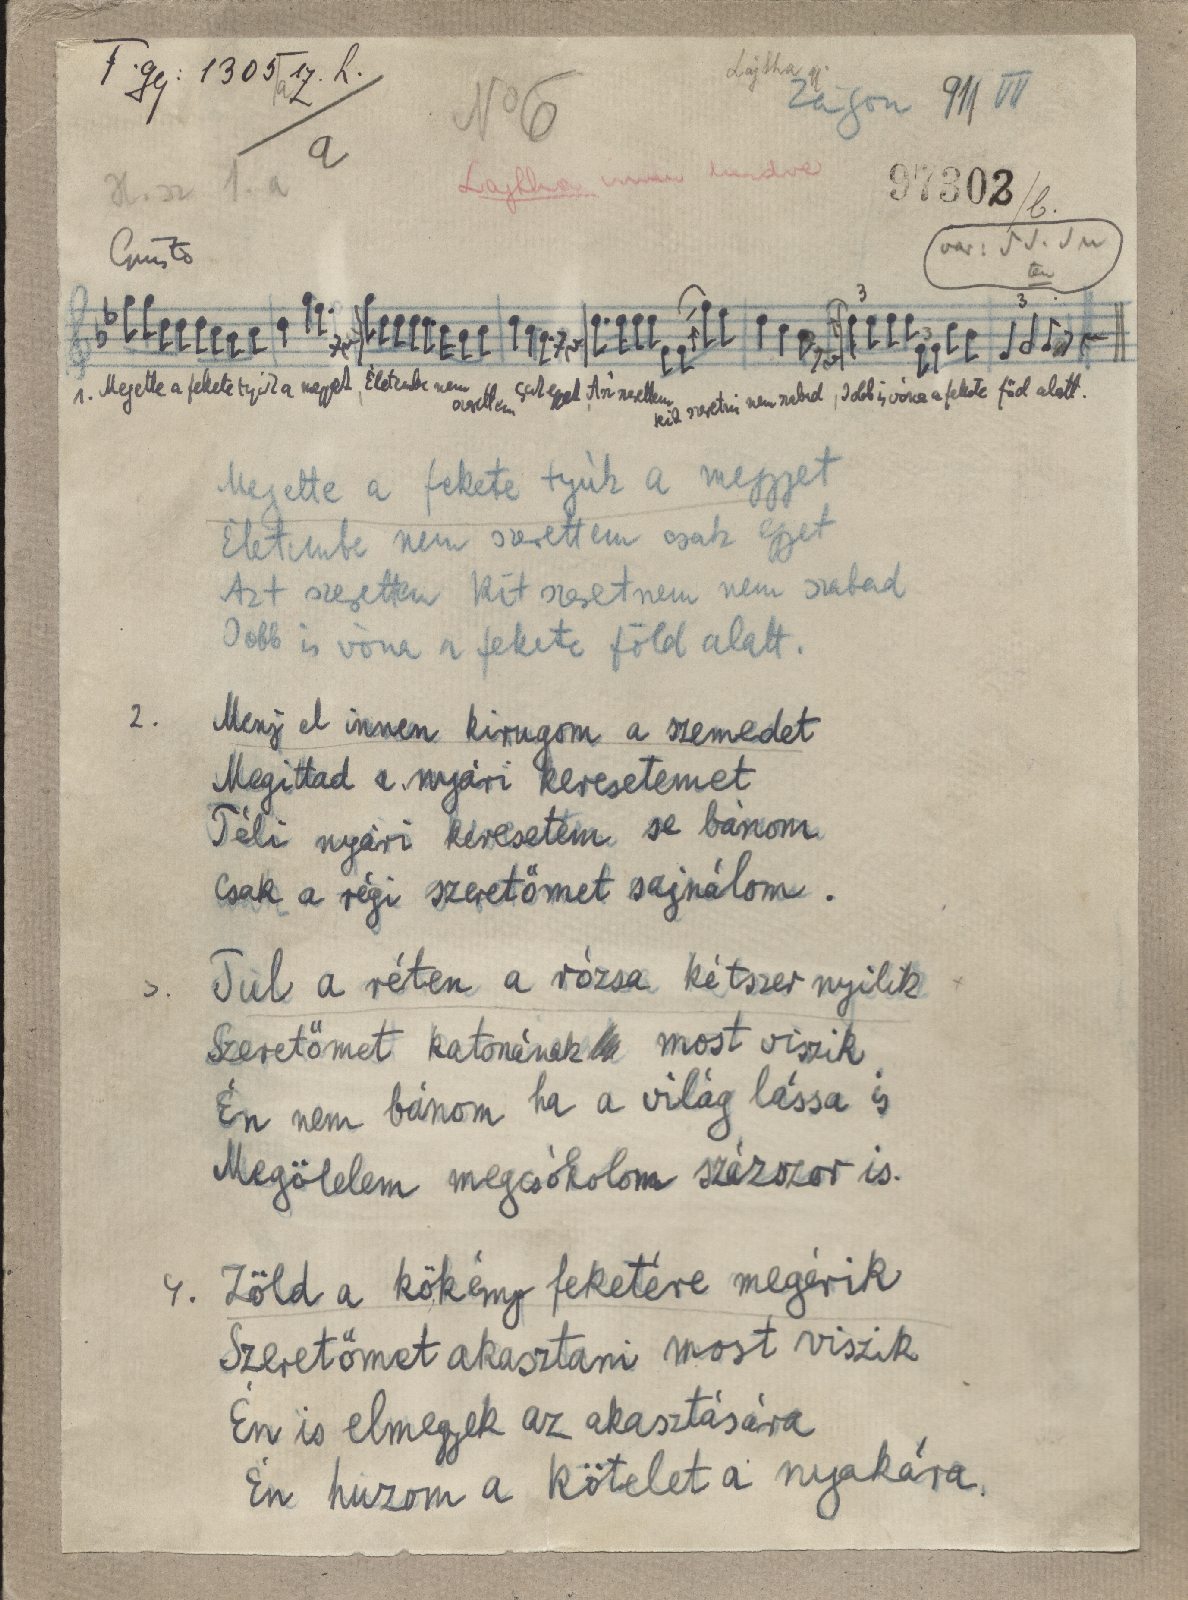 F. gy: 1305 sz. h.
a
No 6
Lajtha gy.
Zágon 911 VII
H. sz 1. a
Lajtha
97302/b.
Giusto
var:
1. Megette a fekete tyúk a meggyet, Életembe nem szerettem csak egyet, Azt szerettem kit szeretni nem szabad, Jobb is vóna a fekete föd alatt.
Megette a fekete tyúk a meggyet
Életembe nem szerettem csak egyet
Azt szerettem kit szeretnem nem szabad
Jobb is vóna a fekete föld alatt.
2. Menj el innen kirugom a szemedet
Megittad a nyári keresetemet
Téli nyári keresetem se bánom
Csak a régi szeretőmet sajnálom.
3. Túl a réten a rózsa kétszer nyilik
Szeretőmet katonának most viszik
Én nem bánom ha a világ lássa is
Megölelem megcsókolom százszor is.
4. Zöld a kökény feketére megérik
Szeretőmet akasztani most viszik
Én is elmegyek az akasztására
Én huzom a kötelet a nyakára.